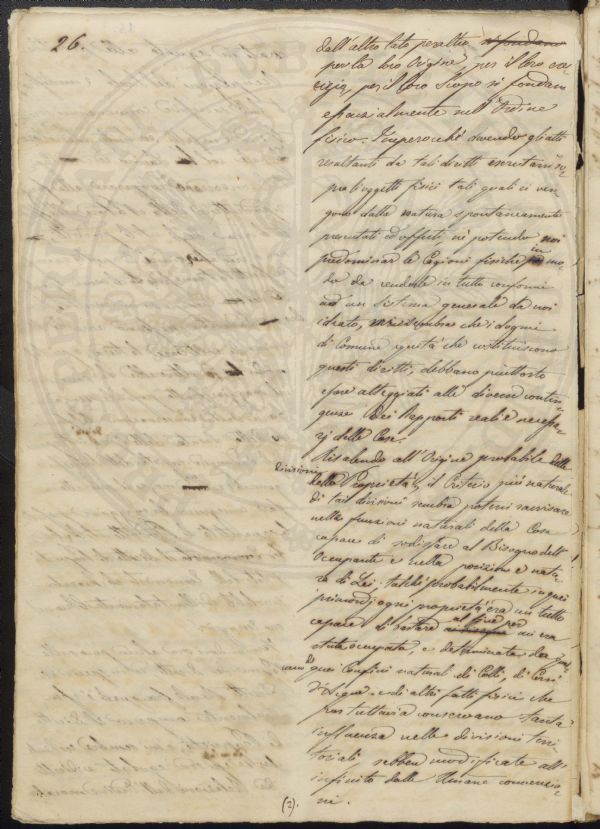 26.
dall'altro lato peraltro si fondano
per la loro Origine, per il loro eser-
cizio, per il loro Scopo si fondano
essenzialmente nell'Ordine
fisico. Imperocchè dovendo gli atti
resultanti da tali diritti esercitarsi so-
pra oggetti fisici tali quali ci ven
gono dalla natura spontaneamente
presentati ed offerti, nè potendo noi
predominare le Cagioni fisiche in mo-
do da renderle in tutto conformi
ad un Sistema generale da noi
ideato, sembra che i dogmi
di Comune equità che costituiscono
questi diritti, debbano piuttosto
essere atteggiati alle diverse contin-
genze dei Rapporti reali e necessa-
rj delle Cose.
Risalendo all'Origine probabile delle
divisioni
della Proprietà, il Criterio più naturale
di tali divisioni sembra potersi ravvisare
nelle funzioni naturali della Cosa
capace di sodisfare al Bisogno dell'
Occupante e nella posizione e natu-
ra di Lei. talchè probabilmente in quei
primordj ogni proprietà era un tutto
capace di bastare al fine per cui era
stata occupata, e determinata da
quei Confini naturali di Colli, di Corsi
d'Acqua e di altri fatti fisici che
pur tuttavia conservano tanta
influenza nelle divisioni terri-
toriali sebben modificate all'
infinito dalle Umane convenzio-
ni.
(2).